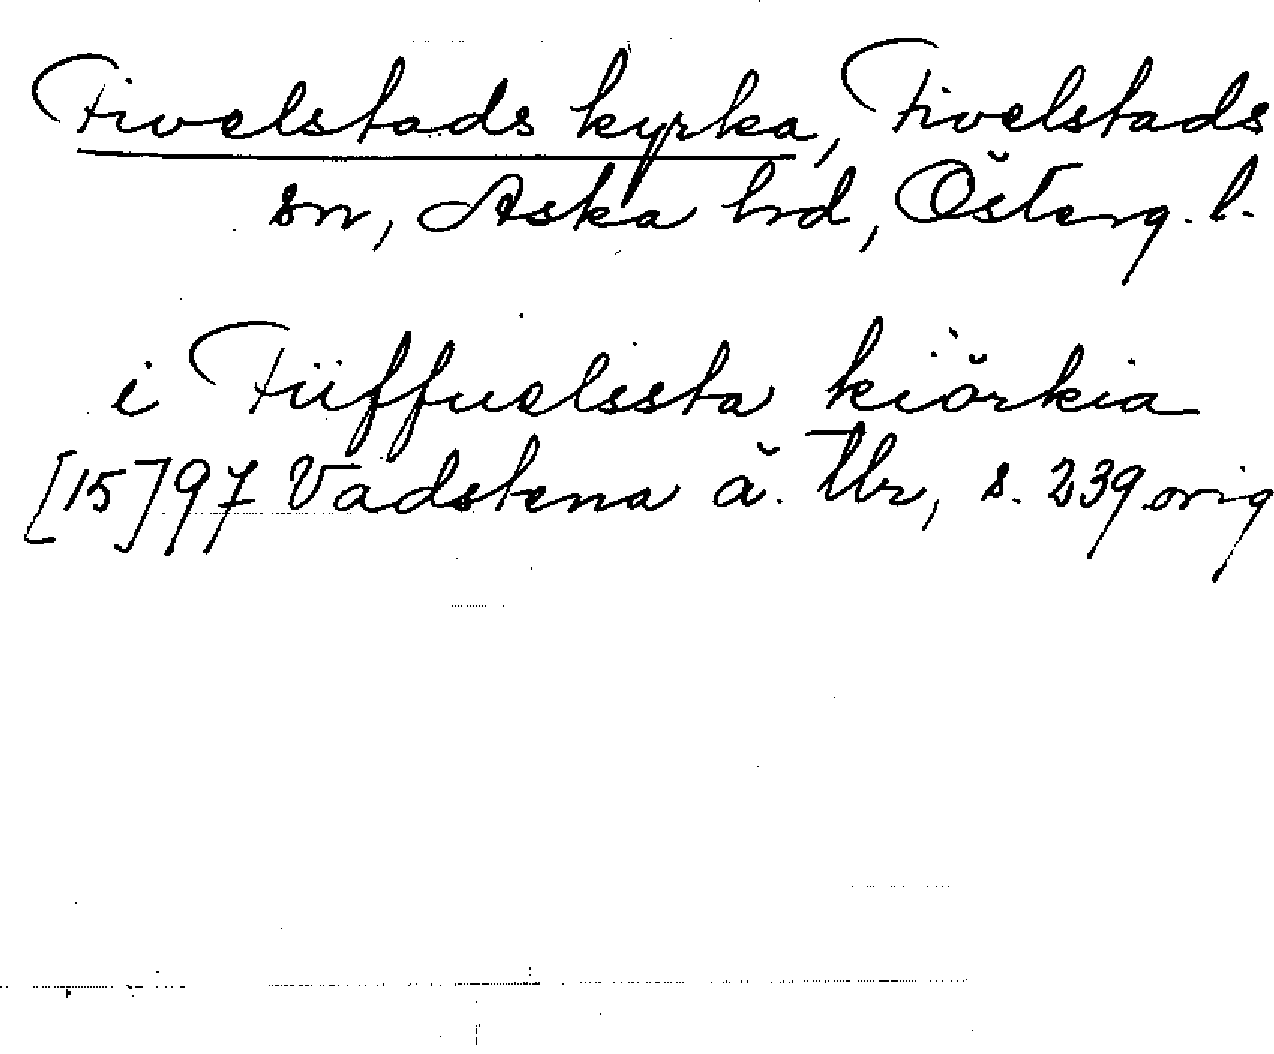 Fivelstads kyrka, Fivelstads
sn, Aska hrd, Österg. l.
i Fiiffuelssta kiörkia
[15]97 Vadstena ä. Tbr, s. 239 orig